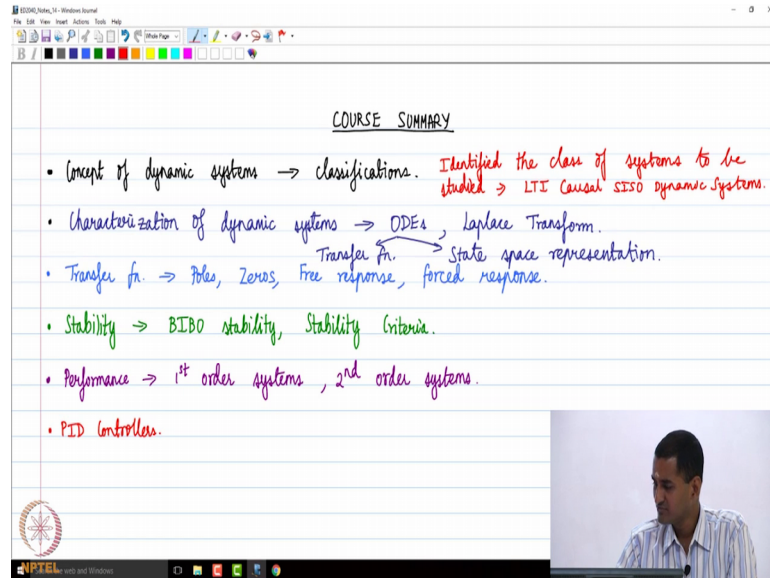 ED2040_Notes_14 - Windows Journal
File Edit View Insert Actions Tools Help
Whole Page
B I
COURSE SUMMARY
• Concept of dynamic systems → classifications. Identified the class of systems to be
studied → LTI Causal SISO Dynamic Systems.
• Characterization of dynamic systems → ODEs, Laplace Transform.
Transfer fn. State space representation.
• Transfer fn. → Poles, Zeros, Free response, forced response.
• Stability → BIBO stability, Stability Criteria.
• Performance → 1st order systems, 2nd order systems.
• PID Controllers.
NPTEL
web and Windows